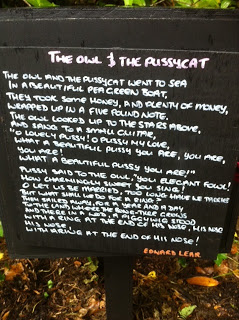 THE OWL & THE PUSSYCAT
THE OWL AND THE PUSSYCAT WENT TO SEA
IN A BEAUTIFUL PEA GREEN BOAT,
THEY TOOK SOME HONEY, AND PLENTY OF MONEY,
WRAPPED UP IN A FIVE POUND NOTE.
THE OWL LOOKED UP TO THE STARS ABOVE,
AND SANG TO A SMALL GUITAR,
"O LOVELY PUSSY! O PUSSY MY LOVE,
WHAT A BEAUTIFUL PUSSY YOU ARE, YOU ARE,
YOU ARE!
WHAT A BEAUTIFUL PUSSY YOU ARE!"
PUSSY SAID TO THE OWL, "YOU ELEGANT FOWL!
HOW CHARMINGLY SWEET YOU SING!
O LET US BE MARRIED, TOO LONG HAVE WE TARRIED
BUT WHAT SHALL WE DO FOR A RING?"
THEY SAILED AWAY FOR A YEAR AND A DAY
TO THE LAND WHERE THE BONG-TREE GROWS
AND THERE IN A WOOD A PIGGYWIG STOOD
WITH A RING AT THE END OF HIS NOSE, HIS NOSE
HIS NOSE,
WITH A RING AT THE END OF HIS NOSE!
EDWARD LEAR